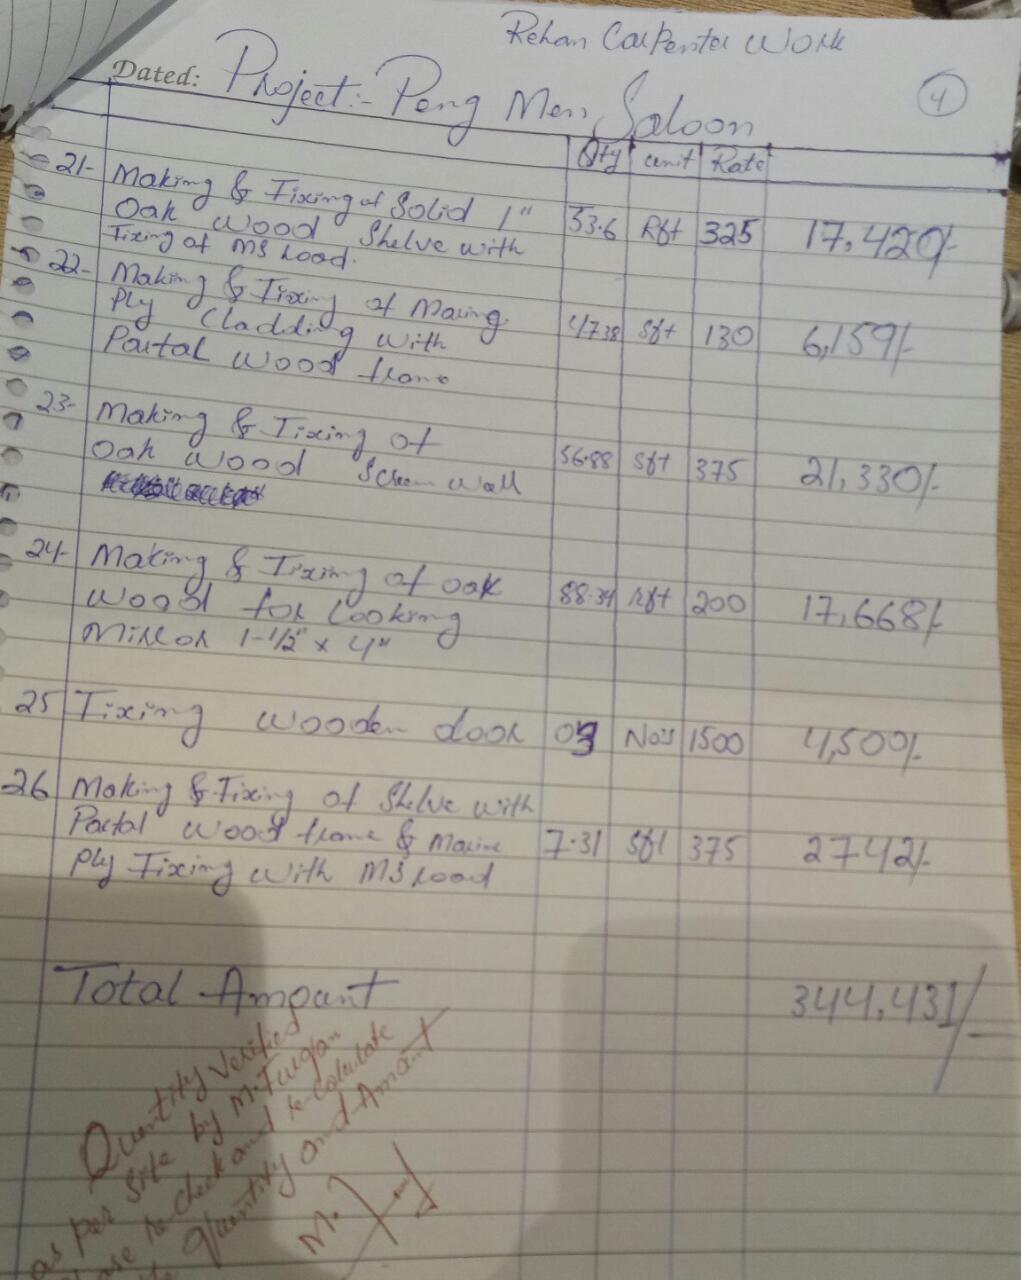 Rehan Carpenter Work
4
Dated: Project:- Peng Men Saloon
Qty unit Rate
21- Making & Fixing of Solid 1"
Oak Wood Shelve with
Fixing of MS Load.
53.6 Rft 325 17,420/-
22- Making & Fixing of Maring
Ply Cladding with
Partal Wood frame
47.38 Sft 130 6,159/-
23- Making & Fixing of
Oak Wood Screen Wall
56.88 Sft 375 21,330/-
24- Making & Fixing of Oak
Wood for Looking
Mirror 1-1/2" x 4"
88.34 Rft 200 17,668/-
25 Fixing Wooden door 03 No's 1500 4,500/-
26 Making & Fixing of Shelve with
Partal Wood frame & Marine
Ply Fixing with MS Load
7.31 Sft 375 2742/-
Total Amount 344,431/-
Quantity Verified
as per Site by M.
re-check and re-Calculate
quantity and Amount
M.